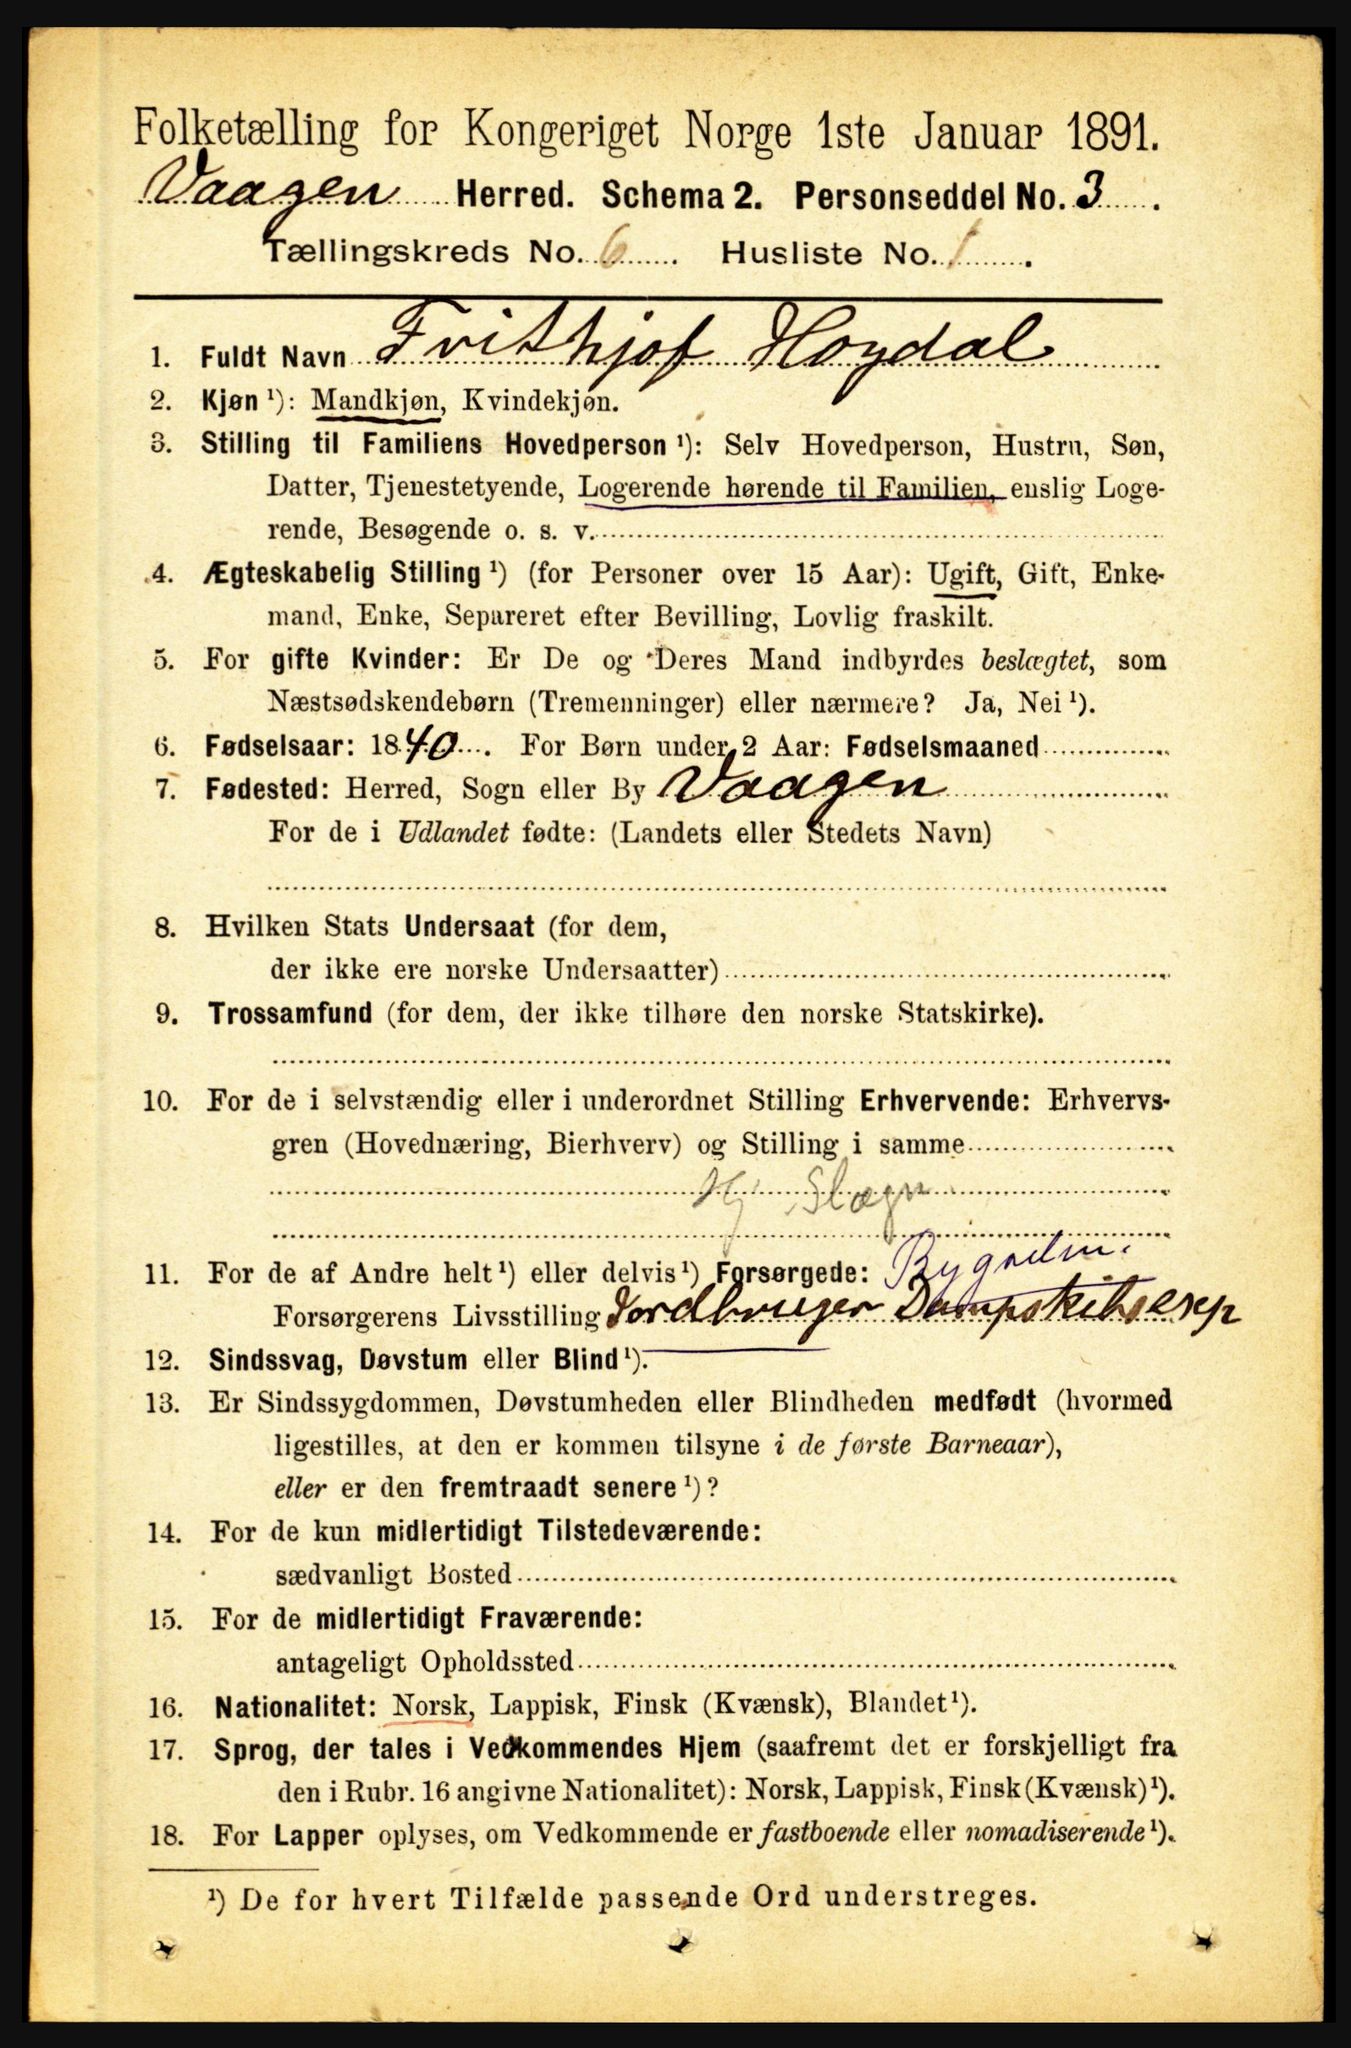 Folketælling for Kongeriget Norge 1ste Januar 1891.
Vaagen Herred. Schema 2. Personseddel No. 3.
Tællingskreds No. 6. Husliste No. 1.
1. Fuldt Navn Frithjof Hoydal
2. Kjøn ¹): Mandkjøn, Kvindekjøn.
3. Stilling til Familiens Hovedperson ¹): Selv Hovedperson, Hustru, Søn,
Datter, Tjenestetyende, Logerende hørende til Familien, enslig Loge-
rende, Besøgende o. s. v.
4. Ægteskabelig Stilling ¹) (for Personer over 15 Aar): Ugift, Gift, Enke-
mand, Enke, Separeret efter Bevilling, Lovlig fraskilt.
5. For gifte Kvinder: Er De og Deres Mand indbyrdes beslægtet, som
Næstsødskendebørn (Tremenninger) eller nærmere? Ja, Nei ¹).
6. Fødselsaar: 1840. For Børn under 2 Aar: Fødselsmaaned
7. Fødested: Herred, Sogn eller By Vaagen
For de i Udlandet fødte: (Landets eller Stedets Navn)
8. Hvilken Stats Undersaat (for dem,
der ikke ere norske Undersaatter)
9. Trossamfund (for dem, der ikke tilhøre den norske Statskirke).
10. For de i selvstændig eller i underordnet Stilling Erhvervende: Erhvervs-
gren (Hovednæring, Bierhverv) og Stilling i samme
Hj. Slægn
11. For de af Andre helt ¹) eller delvis ¹) Forsørgede:
Forsørgerens Livsstilling Jordbruger Dampskibsexp
12. Sindssvag, Døvstum eller Blind ¹).
13. Er Sindssygdommen, Døvstumheden eller Blindheden medfødt (hvormed
ligestilles, at den er kommen tilsyne i de første Barneaar),
eller er den fremtraadt senere ¹)?
14. For de kun midlertidigt Tilstedeværende:
sædvanligt Bosted
15. For de midlertidigt Fraværende:
antageligt Opholdssted
16. Nationalitet: Norsk, Lappisk, Finsk (Kvænsk), Blandet ¹).
17. Sprog, der tales i Vedkommendes Hjem (saafremt det er forskjelligt fra
den i Rubr. 16 angivne Nationalitet): Norsk, Lappisk, Finsk (Kvænsk) ¹).
18. For Lapper oplyses, om Vedkommende er fastboende eller nomadiserende ¹).
¹) De for hvert Tilfælde passende Ord understreges.